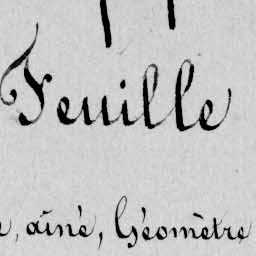 Feuille
aîné, Géomètre